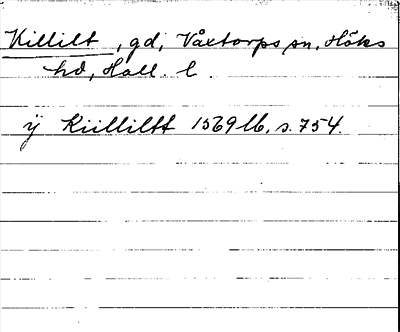 Killilt, gd, Våxtorps sn, Höks
hd, Hall. l.
ÿ Kiillillt 1569 lb, s. 754.